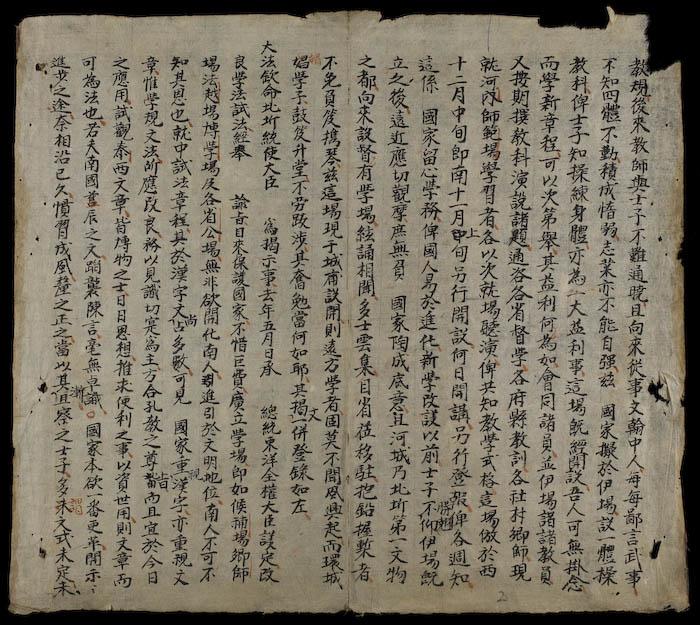 教規後來教師與士子不難通曉且向來從事文翰中人每每鄙言武事
不知四體不動積成惰弱志業亦不能自强茲 國家擬於伊場設一體操
教科俾士子知操練身體亦為一大益利事這場既經開設吾人可無掛念
而學新章程可以次第舉其益利何為如會同諸員並伊場諸教員
又按期撰教科演說諸題通咨各省督學各府縣教訓各社村鄉師現
就河內師範場學習者各以次就場聽演俾共知教學式格這場倣於西
十二月中旬即南十一月上旬另行開設何日開講另行登報俾各週知
這係 國家留心學務俾國人易於進化新學改設以前士子不仰伊場既
立之後遠近應切觀摩庶無負 國家陶成底意且河城乃北圻第一文物
之都向來設督有學場絃誦相聞多士雲集自省莅移駐抱鉛握槧者
不免負笈攜琴茲這場現于城甫設開則遠方學者固莫不聞風興起而環城
學子鼓篋升堂不勞跋涉其奮勉當何如耶其揭文一併登錄如左
大法欽命北圻統使大臣 為揭示事去年五月日承 總統東洋全權大臣議定改
良學法試法經奉 諭旨日來保護國家不惜巨費廣立學場即如候補場鄉師
場法越場博學場及各省公場無非欲開化南人引進引於文明地位南人不可不
知其恩也就中試法章程其於漢字文尚占多數可見 國家重漢字亦重視文
章惟學規文法所應改良務以見識切寔為主方合孔教之尊旨而且宜於今日
之應用試觀泰西文章皆博物之士日日思想推求便利之事以資世用則文章而
可為法也若夫南國舊辰之文蹈襲陳言毫無卓識 國家本欲一番更革開示
進步之途奈相沿已久慣習成風釐之正之當以其漸且察之士子多未文式未定未